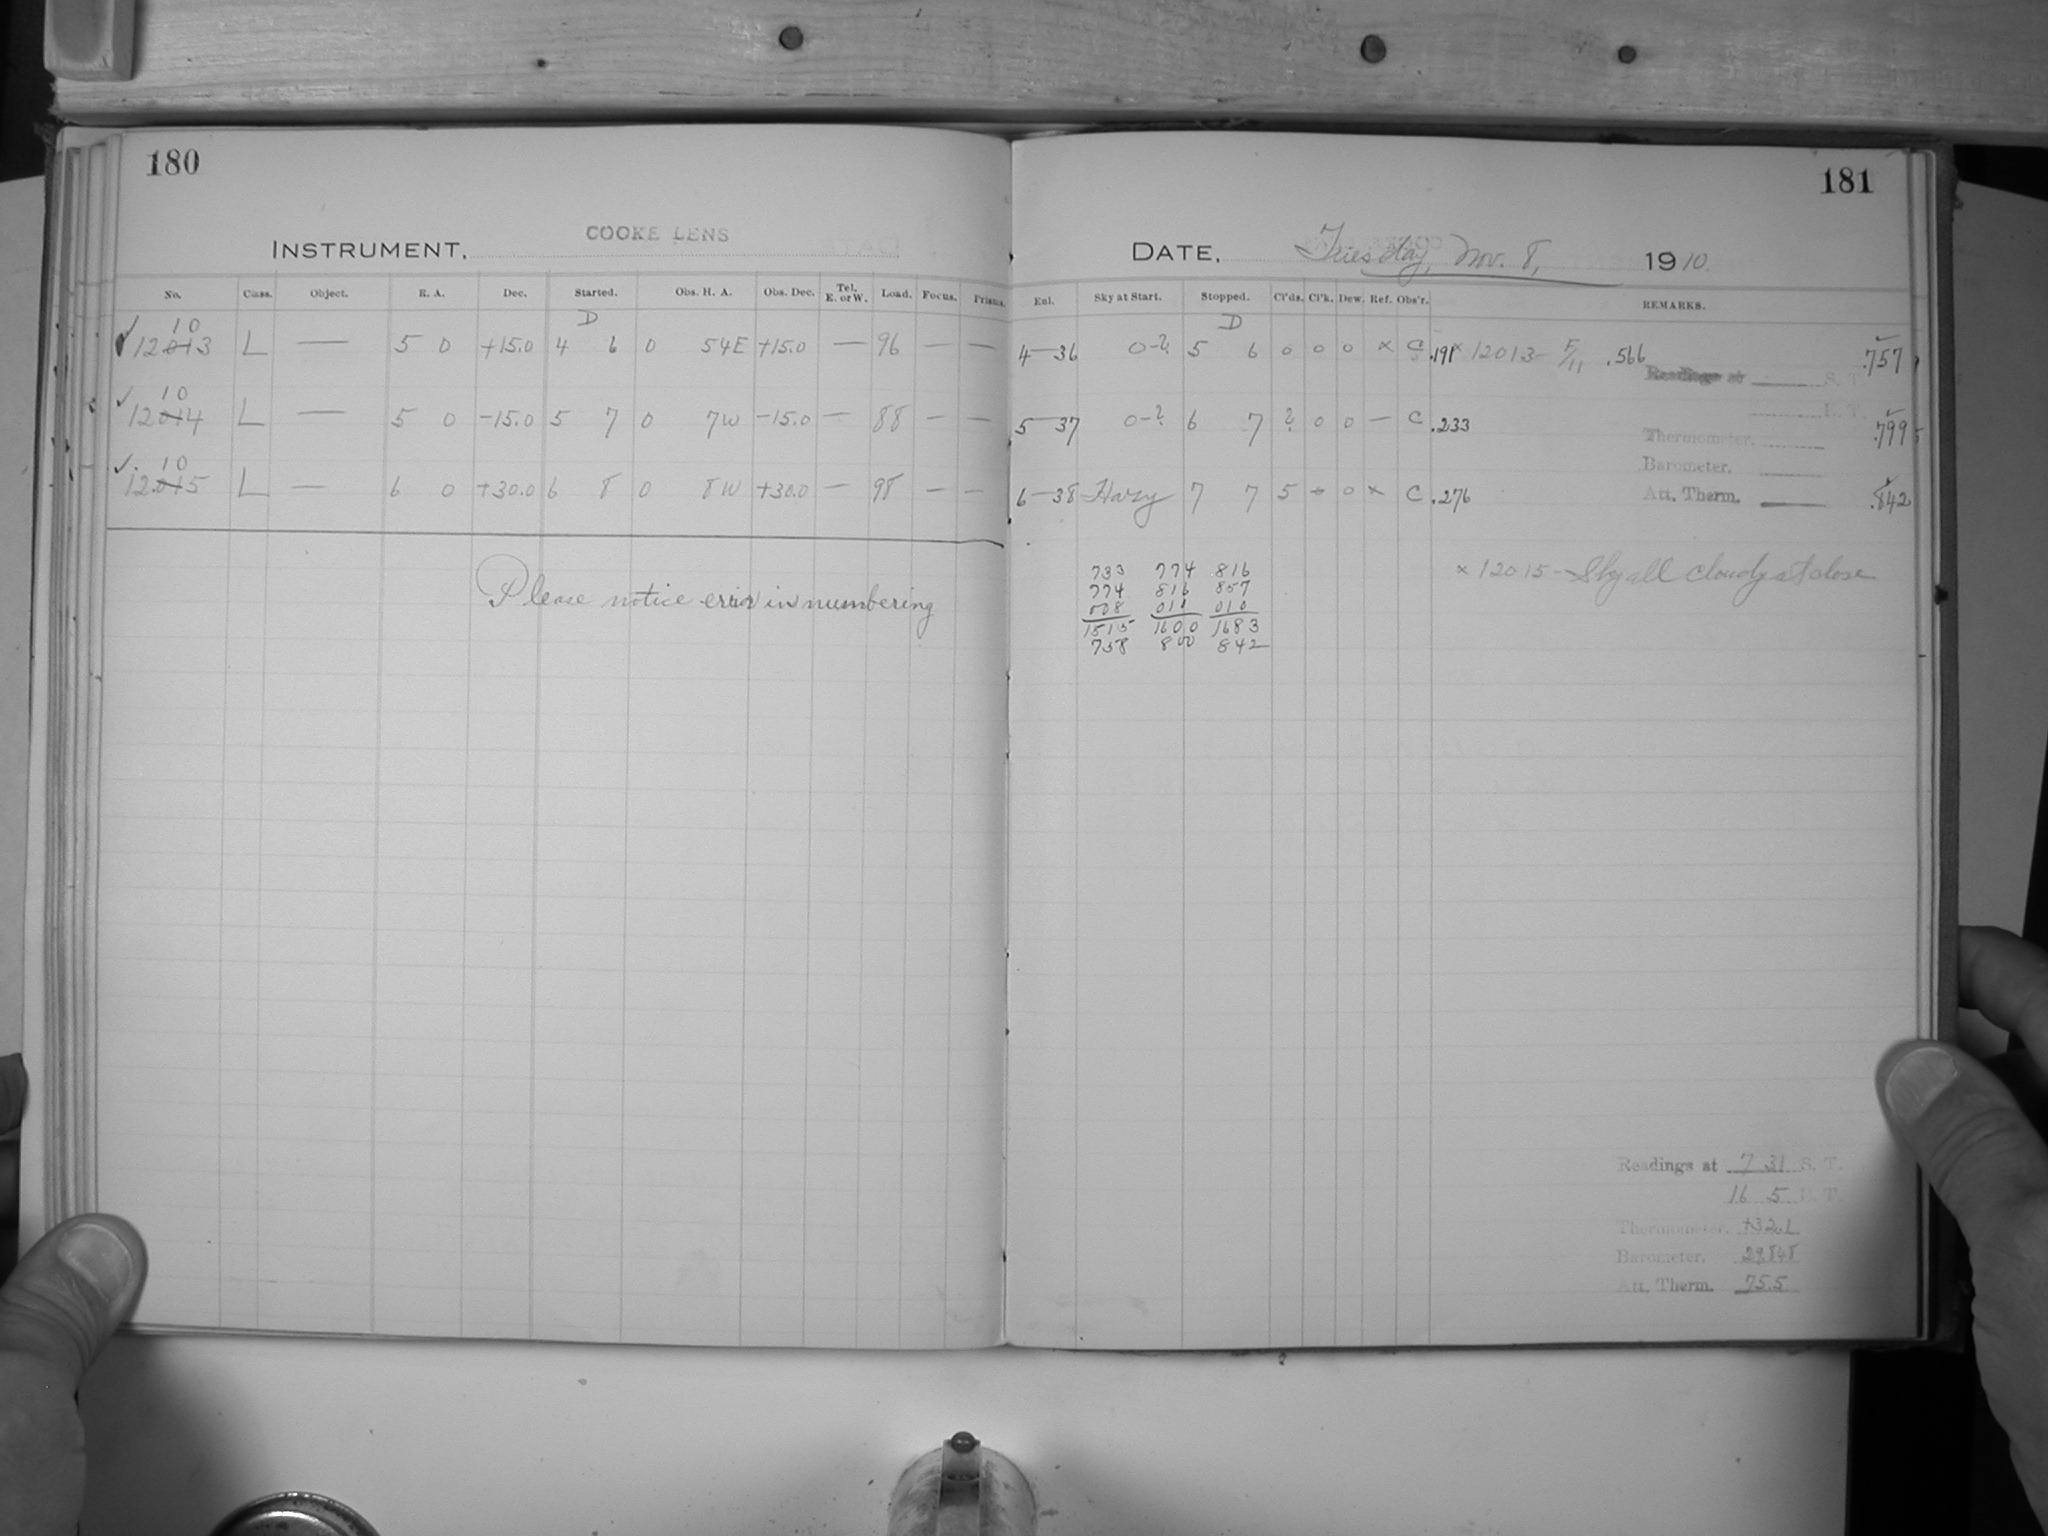 180
181
COOKE LENS
INSTRUMENT,
DATE, Tuesday, Nov. 8, 1910.
No. Class. Object. R. A. Dec. Started. Obs. H. A. Obs. Dec. Tel. E. or W. Load. Focus. Prisms. Enl. Sky at Start. Stopped. Cl'ds. Cl'k. Dew. Ref. Obs'r. REMARKS.
D D
10
12013 L — 5 0 +15.0 4 6 0 54E +15.0 — 96 — — 4—36 0-? 5 6 0 0 0 × C .191 × 12013- 5/11 .566 .757
Readings at S. T.
10
12014 L — 5 0 -15.0 5 7 0 7W -15.0 — 88 — — 5—37 0-? 6 7 ? 0 0 — C .233 .799
Thermometer.
Barometer.
10
12015 L — 6 0 +30.0 6 8 0 8W +30.0 — 98 — — 6—38 Hazy 7 7 5 0 × C .276 .842
Att. Therm.
Please notice error in numbering
× 12015 - Sky all cloudy at close
733 774 816
774 816 857
008 011 010
1515 1600 1683
758 800 842
Readings at 7 31 S. T.
16 5
Thermometer. +32.1
Barometer. 29.848
Att. Therm. 75.5